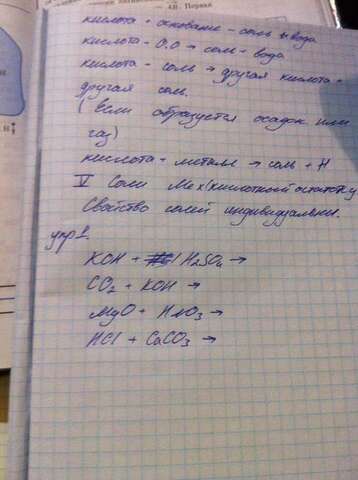 — 48. Первая
кислота + основание – соль + вода
кислота + О.О → соль + вода
кислота + соль → другая кислота +
другая соль.
(если образуется осадок или
газ)
кислота + металл → соль + H
V Соли Меx(кислотный остаток)y
Свойство солей индивидуальны.
упр 1.
KOH + H₂SO₄ →
CO₂ + KOH →
MgO + HNO₃ →
HCl + CaCO₃ →